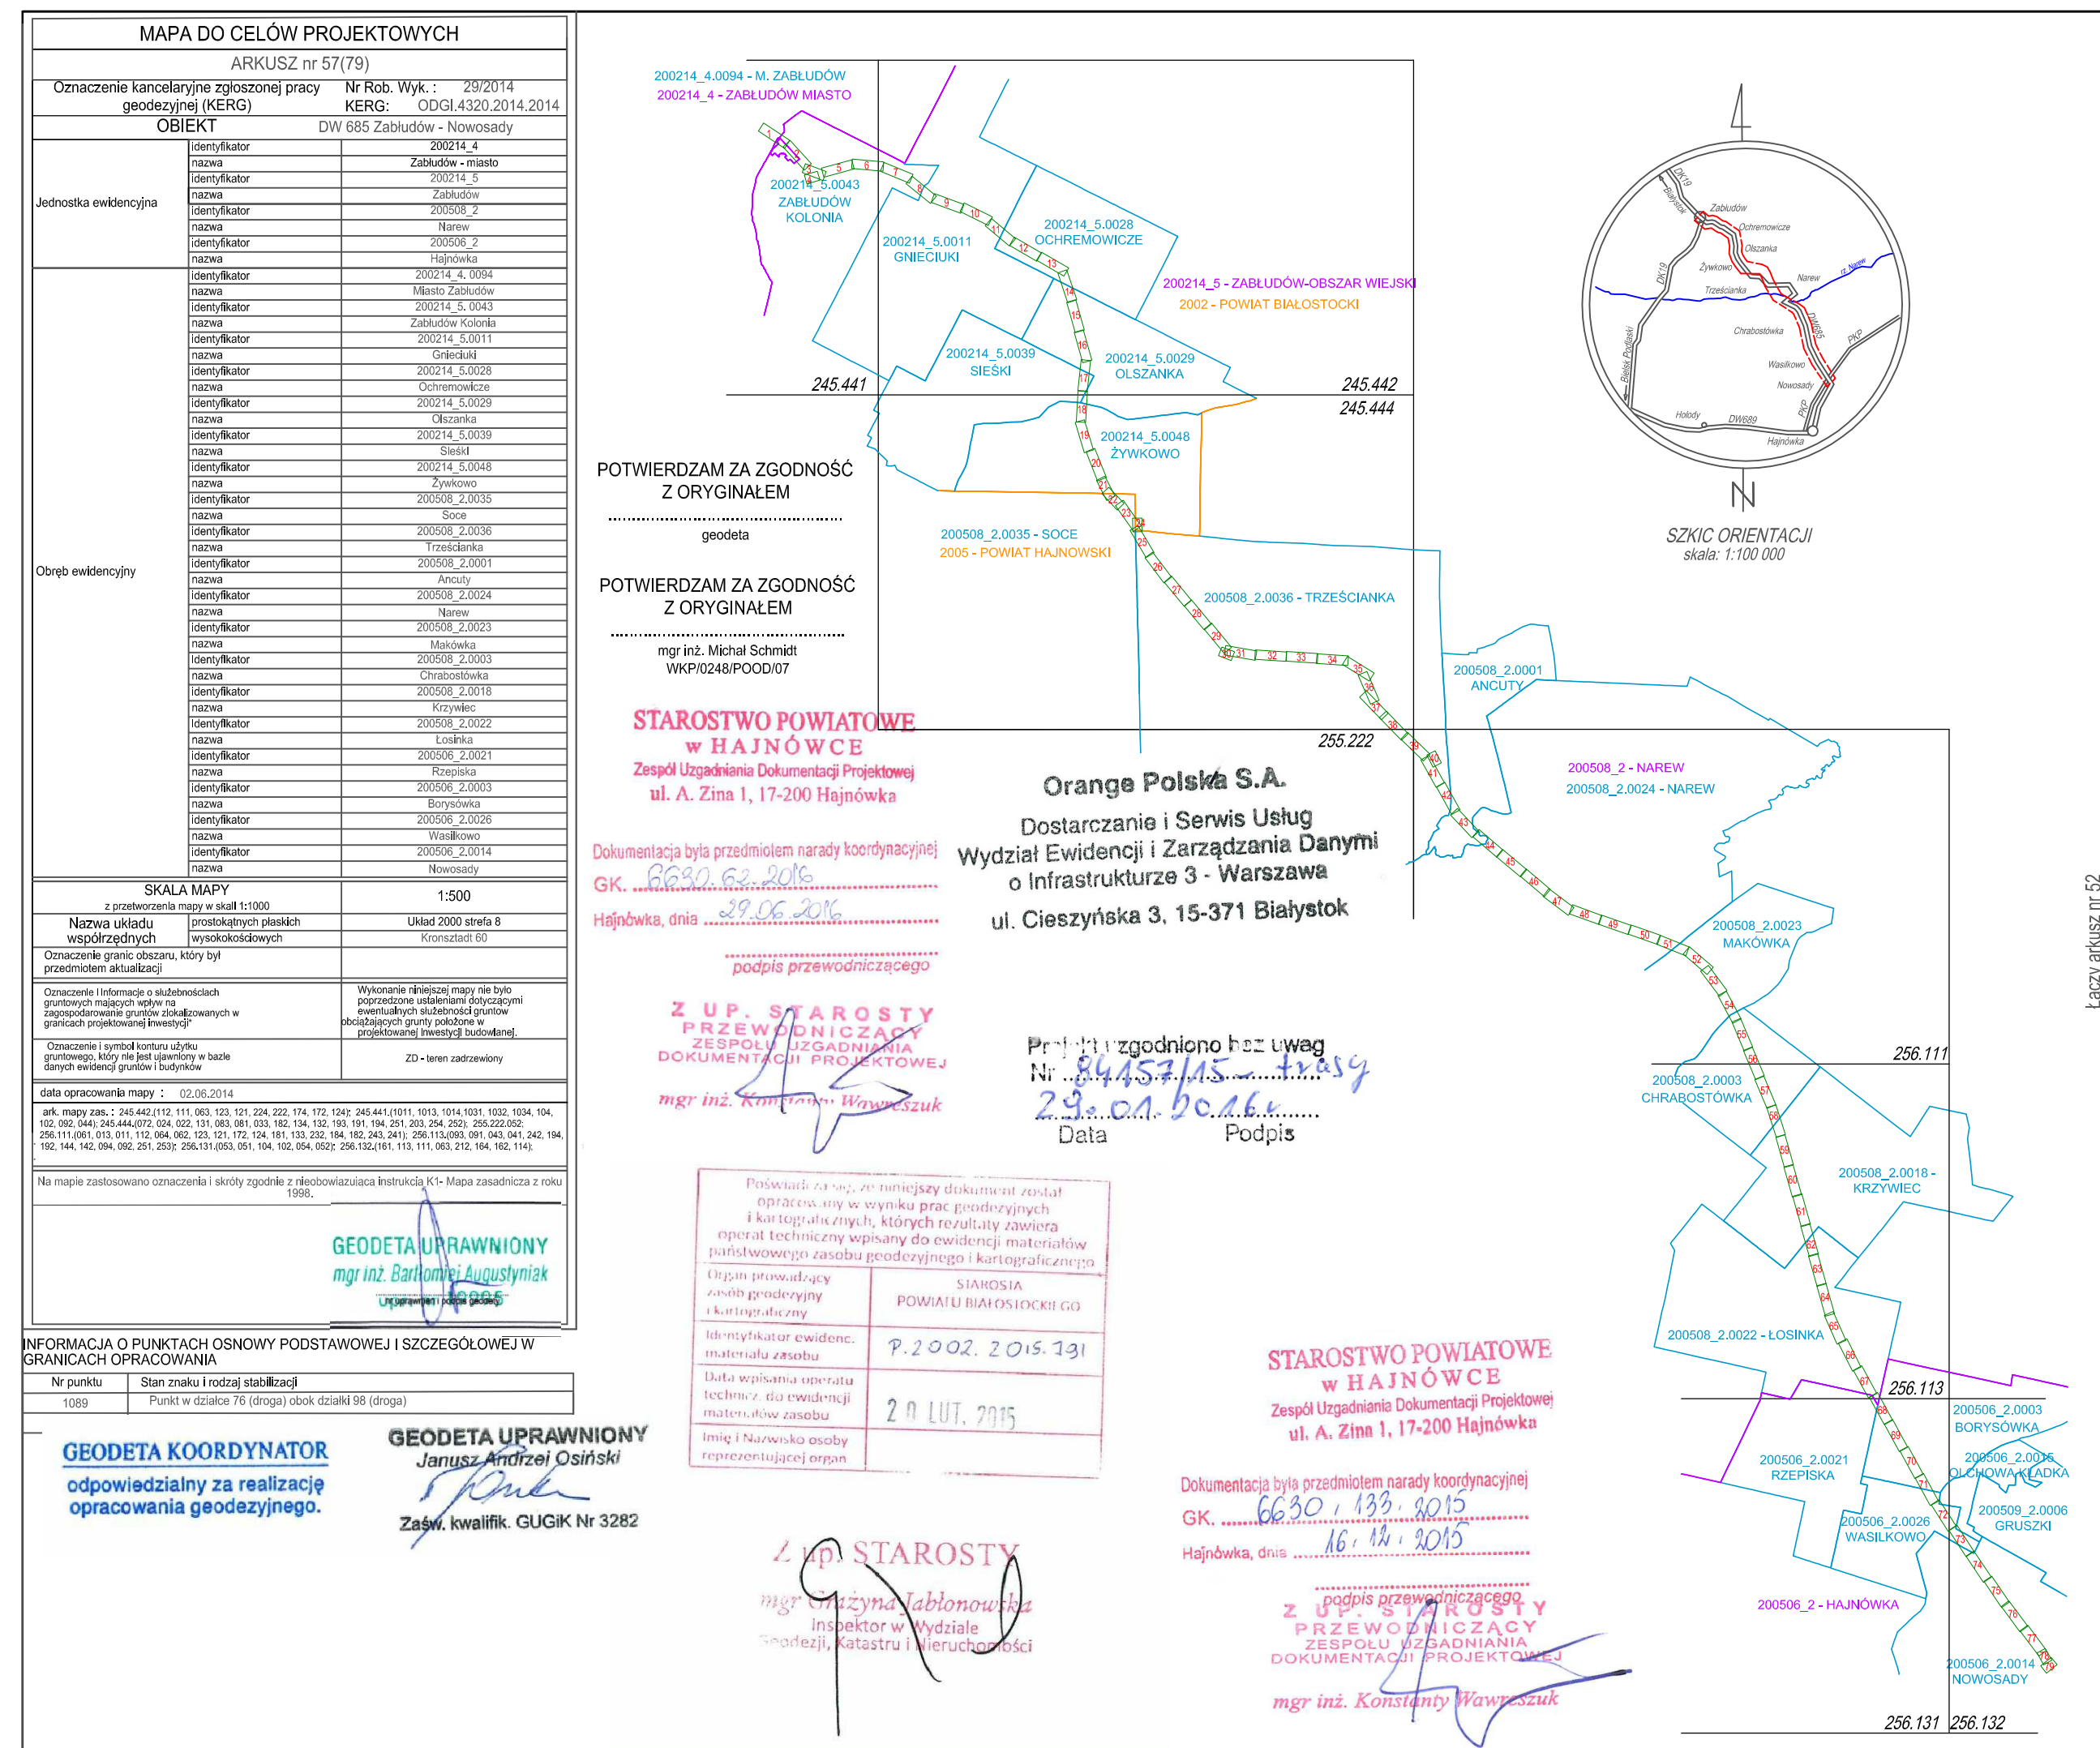 MAPA DO CELÓW PROJEKTOWYCH
ARKUSZ nr 57(79)
Oznaczenie kancelaryjne zgłoszonej pracy geodezyjnej (KERG)
Nr Rob. Wyk. : 29/2014
KERG: ODGI.4320.2014.2014
OBIEKT DW 685 Zabłudów - Nowosady
Jednostka ewidencyjna
identyfikator 200214_4
nazwa Zabłudów - miasto
identyfikator 200214_5
nazwa Zabłudów
identyfikator 200508_2
nazwa Narew
identyfikator 200506_2
nazwa Hajnówka
Obręb ewidencyjny
identyfikator 200214_4. 0094
nazwa Miasto Zabłudów
identyfikator 200214_5. 0043
nazwa Zabłudów Kolonia
identyfikator 200214_5.0011
nazwa Gnieciuki
identyfikator 200214_5.0028
nazwa Ochremowicze
identyfikator 200214_5.0029
nazwa Olszanka
identyfikator 200214_5.0039
nazwa Sieśki
identyfikator 200214_5.0048
nazwa Żywkowo
identyfikator 200508_2.0035
nazwa Soce
identyfikator 200508_2.0036
nazwa Trześcianka
identyfikator 200508_2.0001
nazwa Ancuty
identyfikator 200508_2.0024
nazwa Narew
identyfikator 200508_2.0023
nazwa Makówka
identyfikator 200508_2.0003
nazwa Chrabostówka
identyfikator 200508_2.0018
nazwa Krzywiec
identyfikator 200508_2.0022
nazwa Łosinka
identyfikator 200506_2.0021
nazwa Rzepiska
identyfikator 200506_2.0003
nazwa Borysówka
identyfikator 200506_2.0026
nazwa Wasilkowo
identyfikator 200506_2.0014
nazwa Nowosady
SKALA MAPY
z przetworzenia mapy w skali 1:1000
1:500
Nazwa układu współrzędnych
prostokątnych płaskich Układ 2000 strefa 8
wysokokościowych Kronsztadt 60
Oznaczenie granic obszaru, który był
przedmiotem aktualizacji
Oznaczenie i Informacje o służebnościach
gruntowych mających wpływ na
zagospodarowanie gruntów zlokalizowanych w
granicach projektowanej inwestycji*
Wykonanie niniejszej mapy nie było
poprzedzone ustaleniami dotyczącymi
ewentualnych służebności gruntów
obciążających grunty położone w
projektowanej Inwestycji budowlanej.
Oznaczenie i symbol konturu użytku
gruntowego, który nie jest ujawniony w bazie
danych ewidencji gruntów i budynków
ZD - teren zadrzewiony
data opracowania mapy : 02.06.2014
ark. mapy zas. : 245.442.(112, 111, 063, 123, 121, 224, 222, 174, 172, 124); 245.441.(1011, 1013, 1014,1031, 1032, 1034, 104,
102, 092, 044); 245.444.(072, 024, 022, 131, 083, 081, 033, 182, 134, 132, 193, 191, 194, 251, 203, 254, 252); 255.222.052;
256.111.(061, 013, 011, 112, 064, 062, 123, 121, 172, 124, 181, 133, 232, 184, 182, 243, 241); 256.113.(093, 091, 043, 041, 242, 194,
192, 144, 142, 094, 092, 251, 253); 256.131.(053, 051, 104, 102, 054, 052); 256.132.(161, 113, 111, 063, 212, 164, 162, 114);
Na mapie zastosowano oznaczenia i skróty zgodnie z nieobowiazującą instrukcja K1- Mapa zasadnicza z roku
1998.
GEODETA UPRAWNIONY
mgr inż. Bartłomiej Augustyniak
nr uprawnień i podpis geodety
INFORMACJA O PUNKTACH OSNOWY PODSTAWOWEJ I SZCZEGÓŁOWEJ W
GRANICACH OPRACOWANIA
Nr punktu Stan znaku i rodzaj stabilizacji
1089 Punkt w działce 76 (droga) obok działki 98 (droga)
GEODETA KOORDYNATOR
odpowiedzialny za realizację
opracowania geodezyjnego.
GEODETA UPRAWNIONY
Janusz Andrzej Osiński
Zaśw. kwalifik. GUGiK Nr 3282
POTWIERDZAM ZA ZGODNOŚĆ
Z ORYGINAŁEM
geodeta
POTWIERDZAM ZA ZGODNOŚĆ
Z ORYGINAŁEM
mgr inż. Michał Schmidt
WKP/0248/POOD/07
STAROSTWO POWIATOWE
w HAJNÓWCE
Zespół Uzgadniania Dokumentacji Projektowej
ul. A. Zina 1, 17-200 Hajnówka
Dokumentacja była przedmiotem narady koordynacyjnej
GK. 6630.62.2016
Hajnówka, dnia 29.06.2016
podpis przewodniczącego
Z UP. STAROSTY
PRZEWODNICZĄCY
ZESPOŁU UZGADNIANIA
DOKUMENTACJI PROJEKTOWEJ
mgr inż. Konstanty Wawreszuk
Orange Polska S.A.
Dostarczanie i Serwis Usług
Wydział Ewidencji i Zarządzania Danymi
o Infrastrukturze 3 - Warszawa
ul. Cieszyńska 3, 15-371 Białystok
Projekt uzgodniono bez uwag
Nr 84157/15 - trasy
29.01.2016r
Data Podpis
Poświadcza się, że niniejszy dokument został
opracowany w wyniku prac geodezyjnych
i kartograficznych, których rezultaty zawiera
operat techniczny wpisany do ewidencji materiałów
państwowego zasobu geodezyjnego i kartograficznego
Organ prowadzący
zasób geodezyjny
i kartograficzny
STAROSTA
POWIATU BIAŁOSTOCKIEGO
Identyfikator ewidenc.
materiału zasobu
P.2002.2015.791
Data wpisania operatu
technicz. do ewidencji
materiałów zasobu
20 LUT. 2015
Imię i Nazwisko osoby
reprezentującej organ
Z up. STAROSTY
mgr Grażyna Jabłonowska
Inspektor w Wydziale
Geodezji, Katastru i Nieruchomości
STAROSTWO POWIATOWE
w HAJNÓWCE
Zespół Uzgadniania Dokumentacji Projektowej
ul. A. Zina 1, 17-200 Hajnówka
Dokumentacja była przedmiotem narady koordynacyjnej
GK. 6630.133.2015
Hajnówka, dnia 16.12.2015
podpis przewodniczącego
Z UP. STAROSTY
PRZEWODNICZĄCY
ZESPOŁU UZGADNIANIA
DOKUMENTACJI PROJEKTOWEJ
mgr inż. Konstanty Wawreszuk
200214_4.0094 - M. ZABŁUDÓW
200214_4 - ZABŁUDÓW MIASTO
200214_5.0043
ZABŁUDÓW
KOLONIA
200214_5.0011
GNIECIUKI
200214_5.0028
OCHREMOWICZE
200214_5 - ZABŁUDÓW-OBSZAR WIEJSKI
2002 - POWIAT BIAŁOSTOCKI
200214_5.0039
SIEŚKI
200214_5.0029
OLSZANKA
245.441
245.442
245.444
200214_5.0048
ŻYWKOWO
200508_2.0035 - SOCE
2005 - POWIAT HAJNOWSKI
200508_2.0036 - TRZEŚCIANKA
200508_2.0001
ANCUTY
255.222
200508_2 - NAREW
200508_2.0024 - NAREW
200508_2.0023
MAKÓWKA
256.111
200508_2.0003
CHRABOSTÓWKA
200508_2.0018 -
KRZYWIEC
200508_2.0022 - ŁOSINKA
256.113
200506_2.0003
BORYSÓWKA
200506_2.0021
RZEPISKA
200506_2.0015
OLCHOWA KŁADKA
200509_2.0006
GRUSZKI
200506_2.0026
WASILKOWO
200506_2 - HAJNÓWKA
200506_2.0014
NOWOSADY
256.131
256.132
1 2 3 4 5 6 7 8 9 10 11 12 13 14 15 16 17 18 19 20 21 22 23 24 25 26 27 28 29 30 31 32 33 34 35 36 37 38 39 40 41 42 43 44 45 46 47 48 49 50 51 52 53 54 55 56 57 58 59 60 61 62 63 64 65 66 67 68 69 70 71 72 73 74 75 76 77 78 79
DK19
Białystok
Zabłudów
Ochremowicze
Olszanka
Żywkowo
Narew
rz. Narew
Trześcianka
DK19
Chrabostówka
DW685
PKP
Wasilkowo
Nowosady
Bielsk Podlaski
Hołody
DW689
PKP
Hajnówka
N
SZKIC ORIENTACJI
skala: 1:100 000
Łączy arkusz nr 52